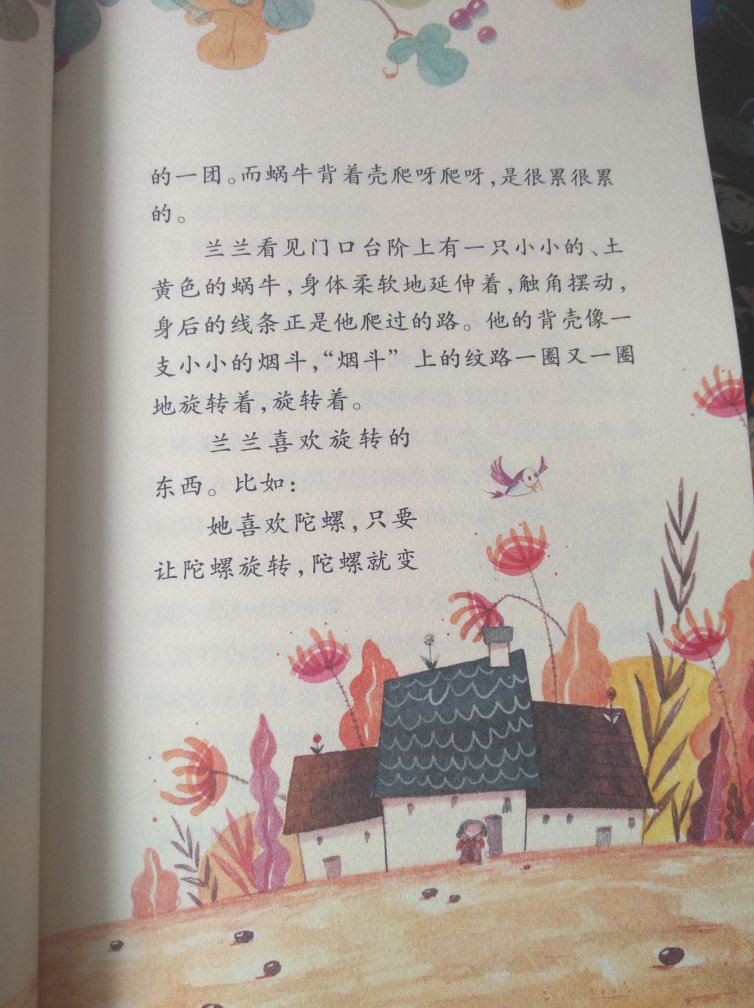 的一团。而蜗牛背着壳爬呀爬呀,是很累很累
的。
兰兰看见门口台阶上有一只小小的、土
黄色的蜗牛,身体柔软地延伸着,触角摆动,
身后的线条正是他爬过的路。他的背壳像一
支小小的烟斗,“烟斗”上的纹路一圈又一圈
地旋转着,旋转着。
兰兰喜欢旋转的
东西。比如:
她喜欢陀螺,只要
让陀螺旋转,陀螺就变